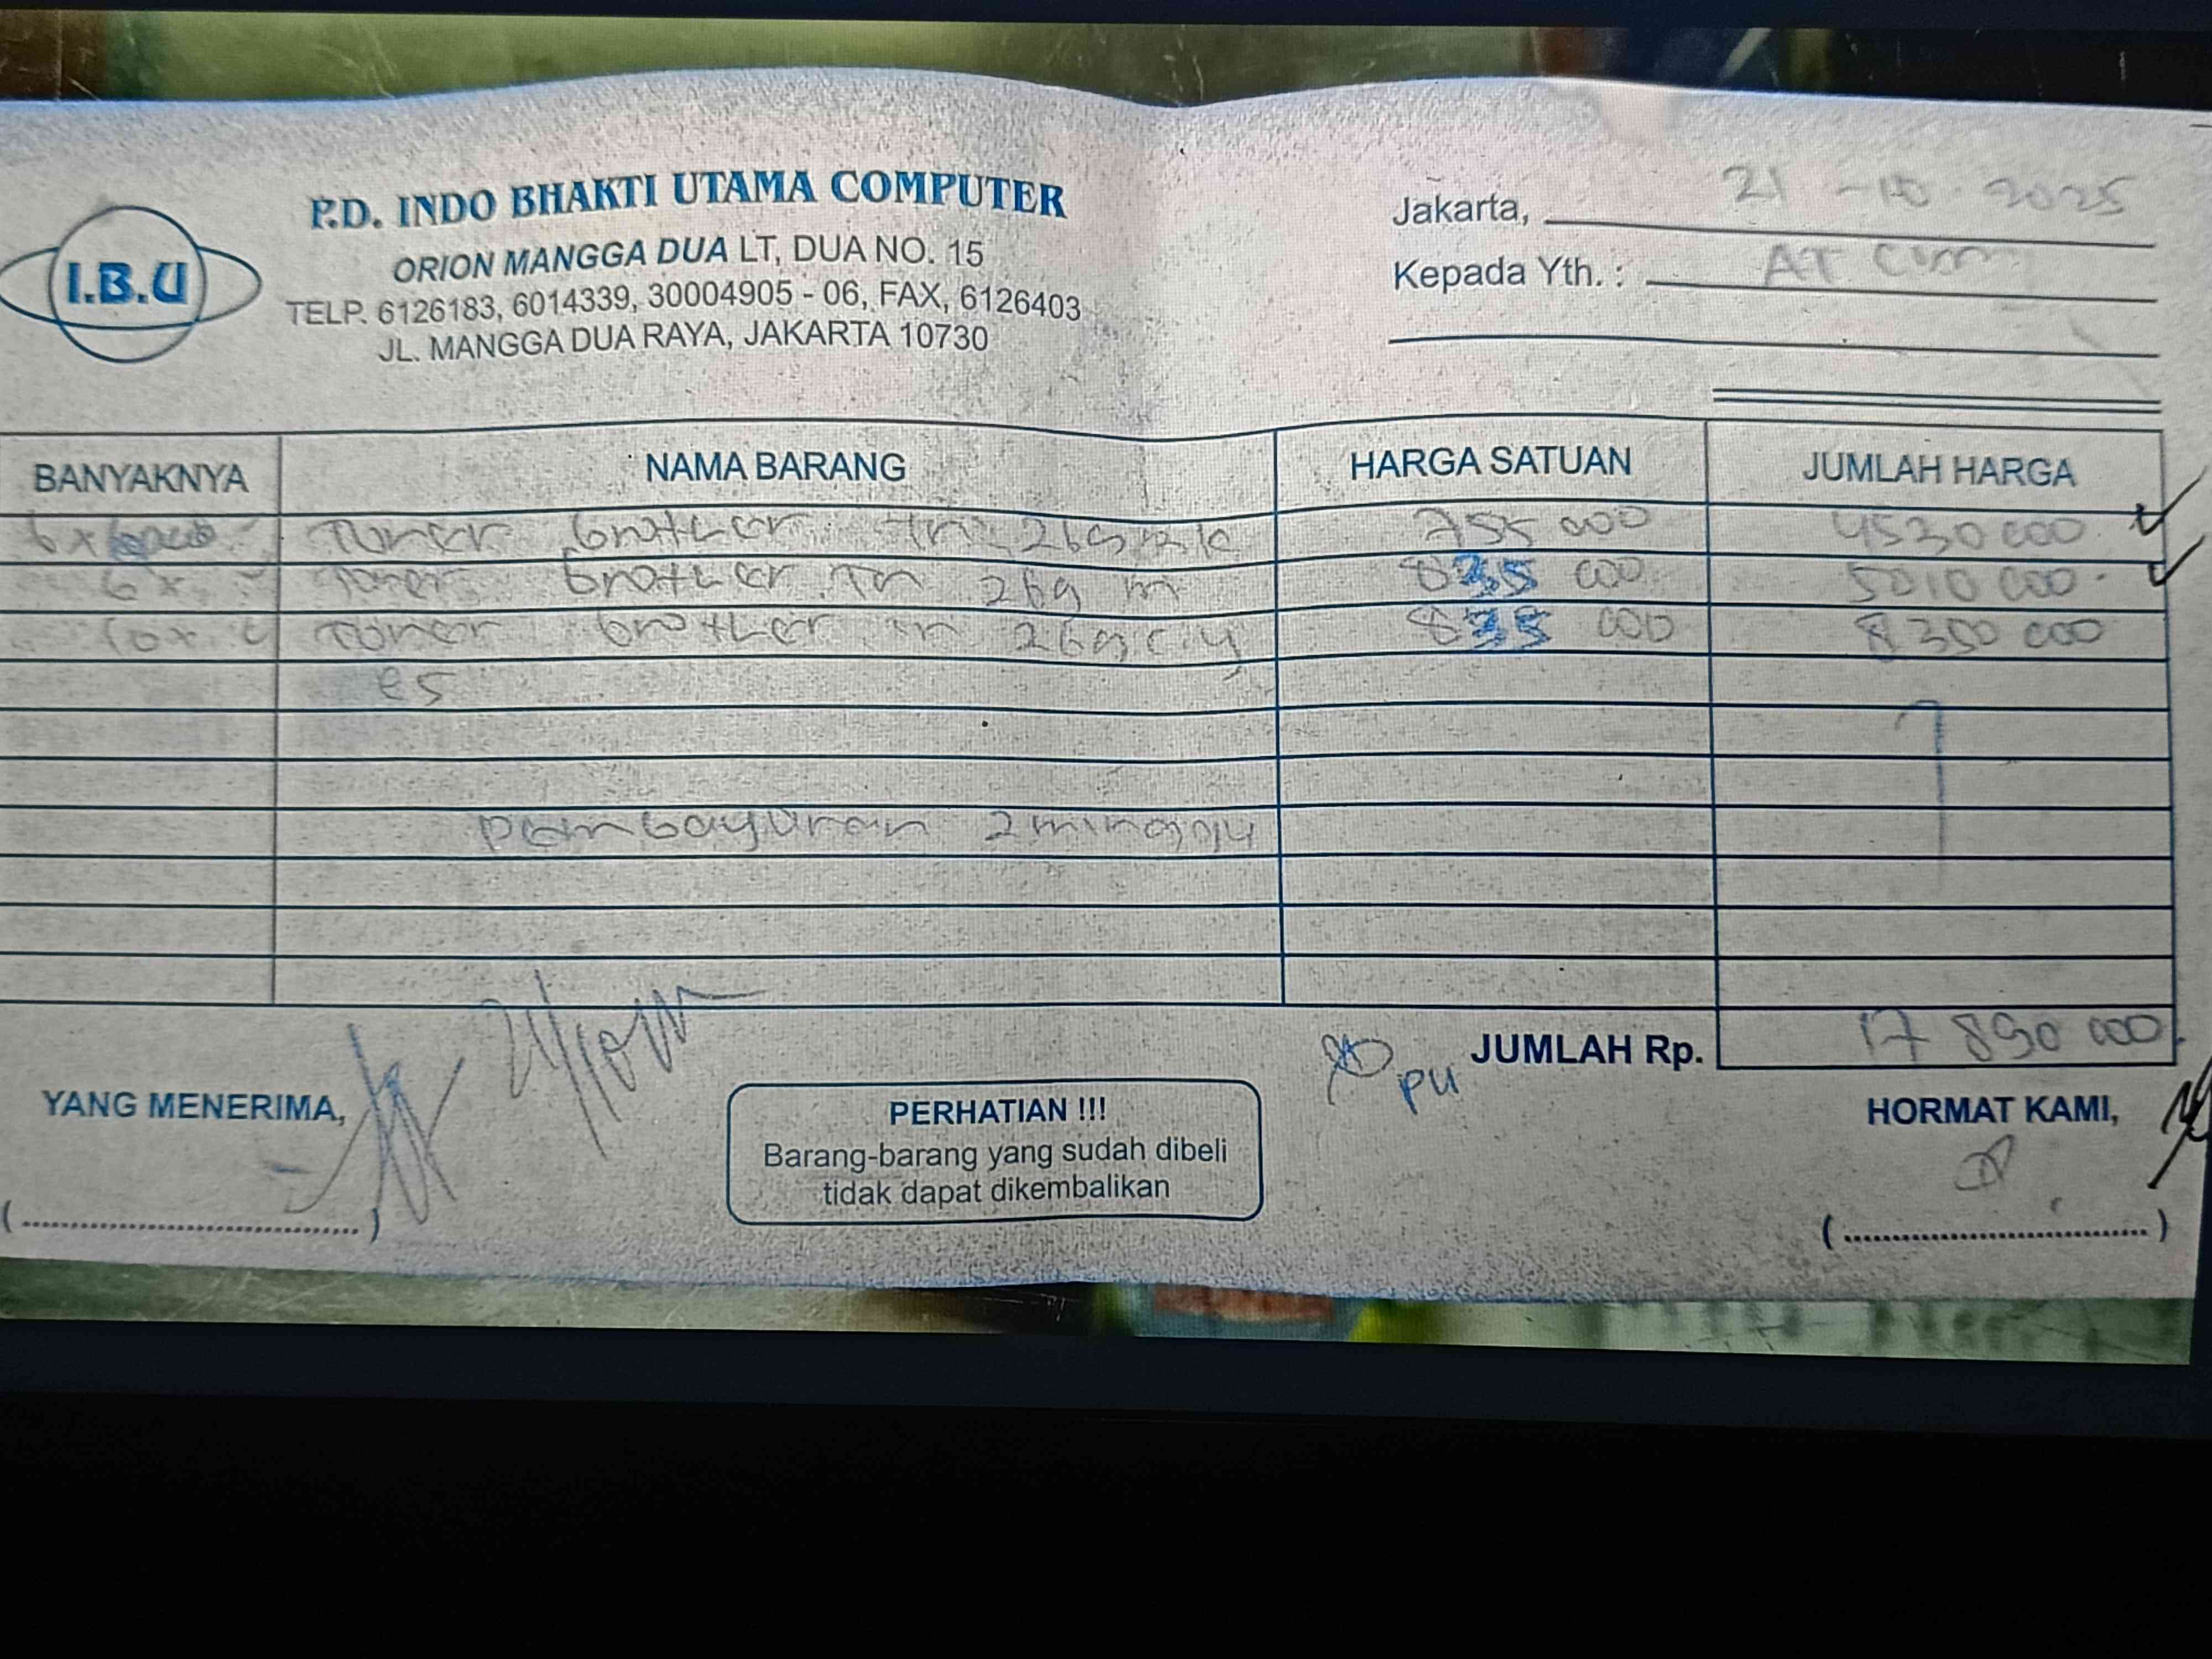 P.D. INDO BHAKTI UTAMA COMPUTER
I.B.U
ORION MANGGA DUA LT, DUA NO. 15
TELP. 6126183, 6014339, 30004905 - 06, FAX, 6126403
JL. MANGGA DUA RAYA, JAKARTA 10730
Jakarta, 21 - 10 - 2025
Kepada Yth. : AT Com
BANYAKNYA NAMA BARANG HARGA SATUAN JUMLAH HARGA
6 x toner brother tn 269 bk 755 000 4530 000
6 x toner brother tn 269 m 835 000 5010 000
10 x toner brother tn 269 c.y 835 000 8 350 000
es
pembayaran 2 minggu
JUMLAH Rp. 17 890 000
PU
YANG MENERIMA,
PERHATIAN !!!
Barang-barang yang sudah dibeli
tidak dapat dikembalikan
HORMAT KAMI,